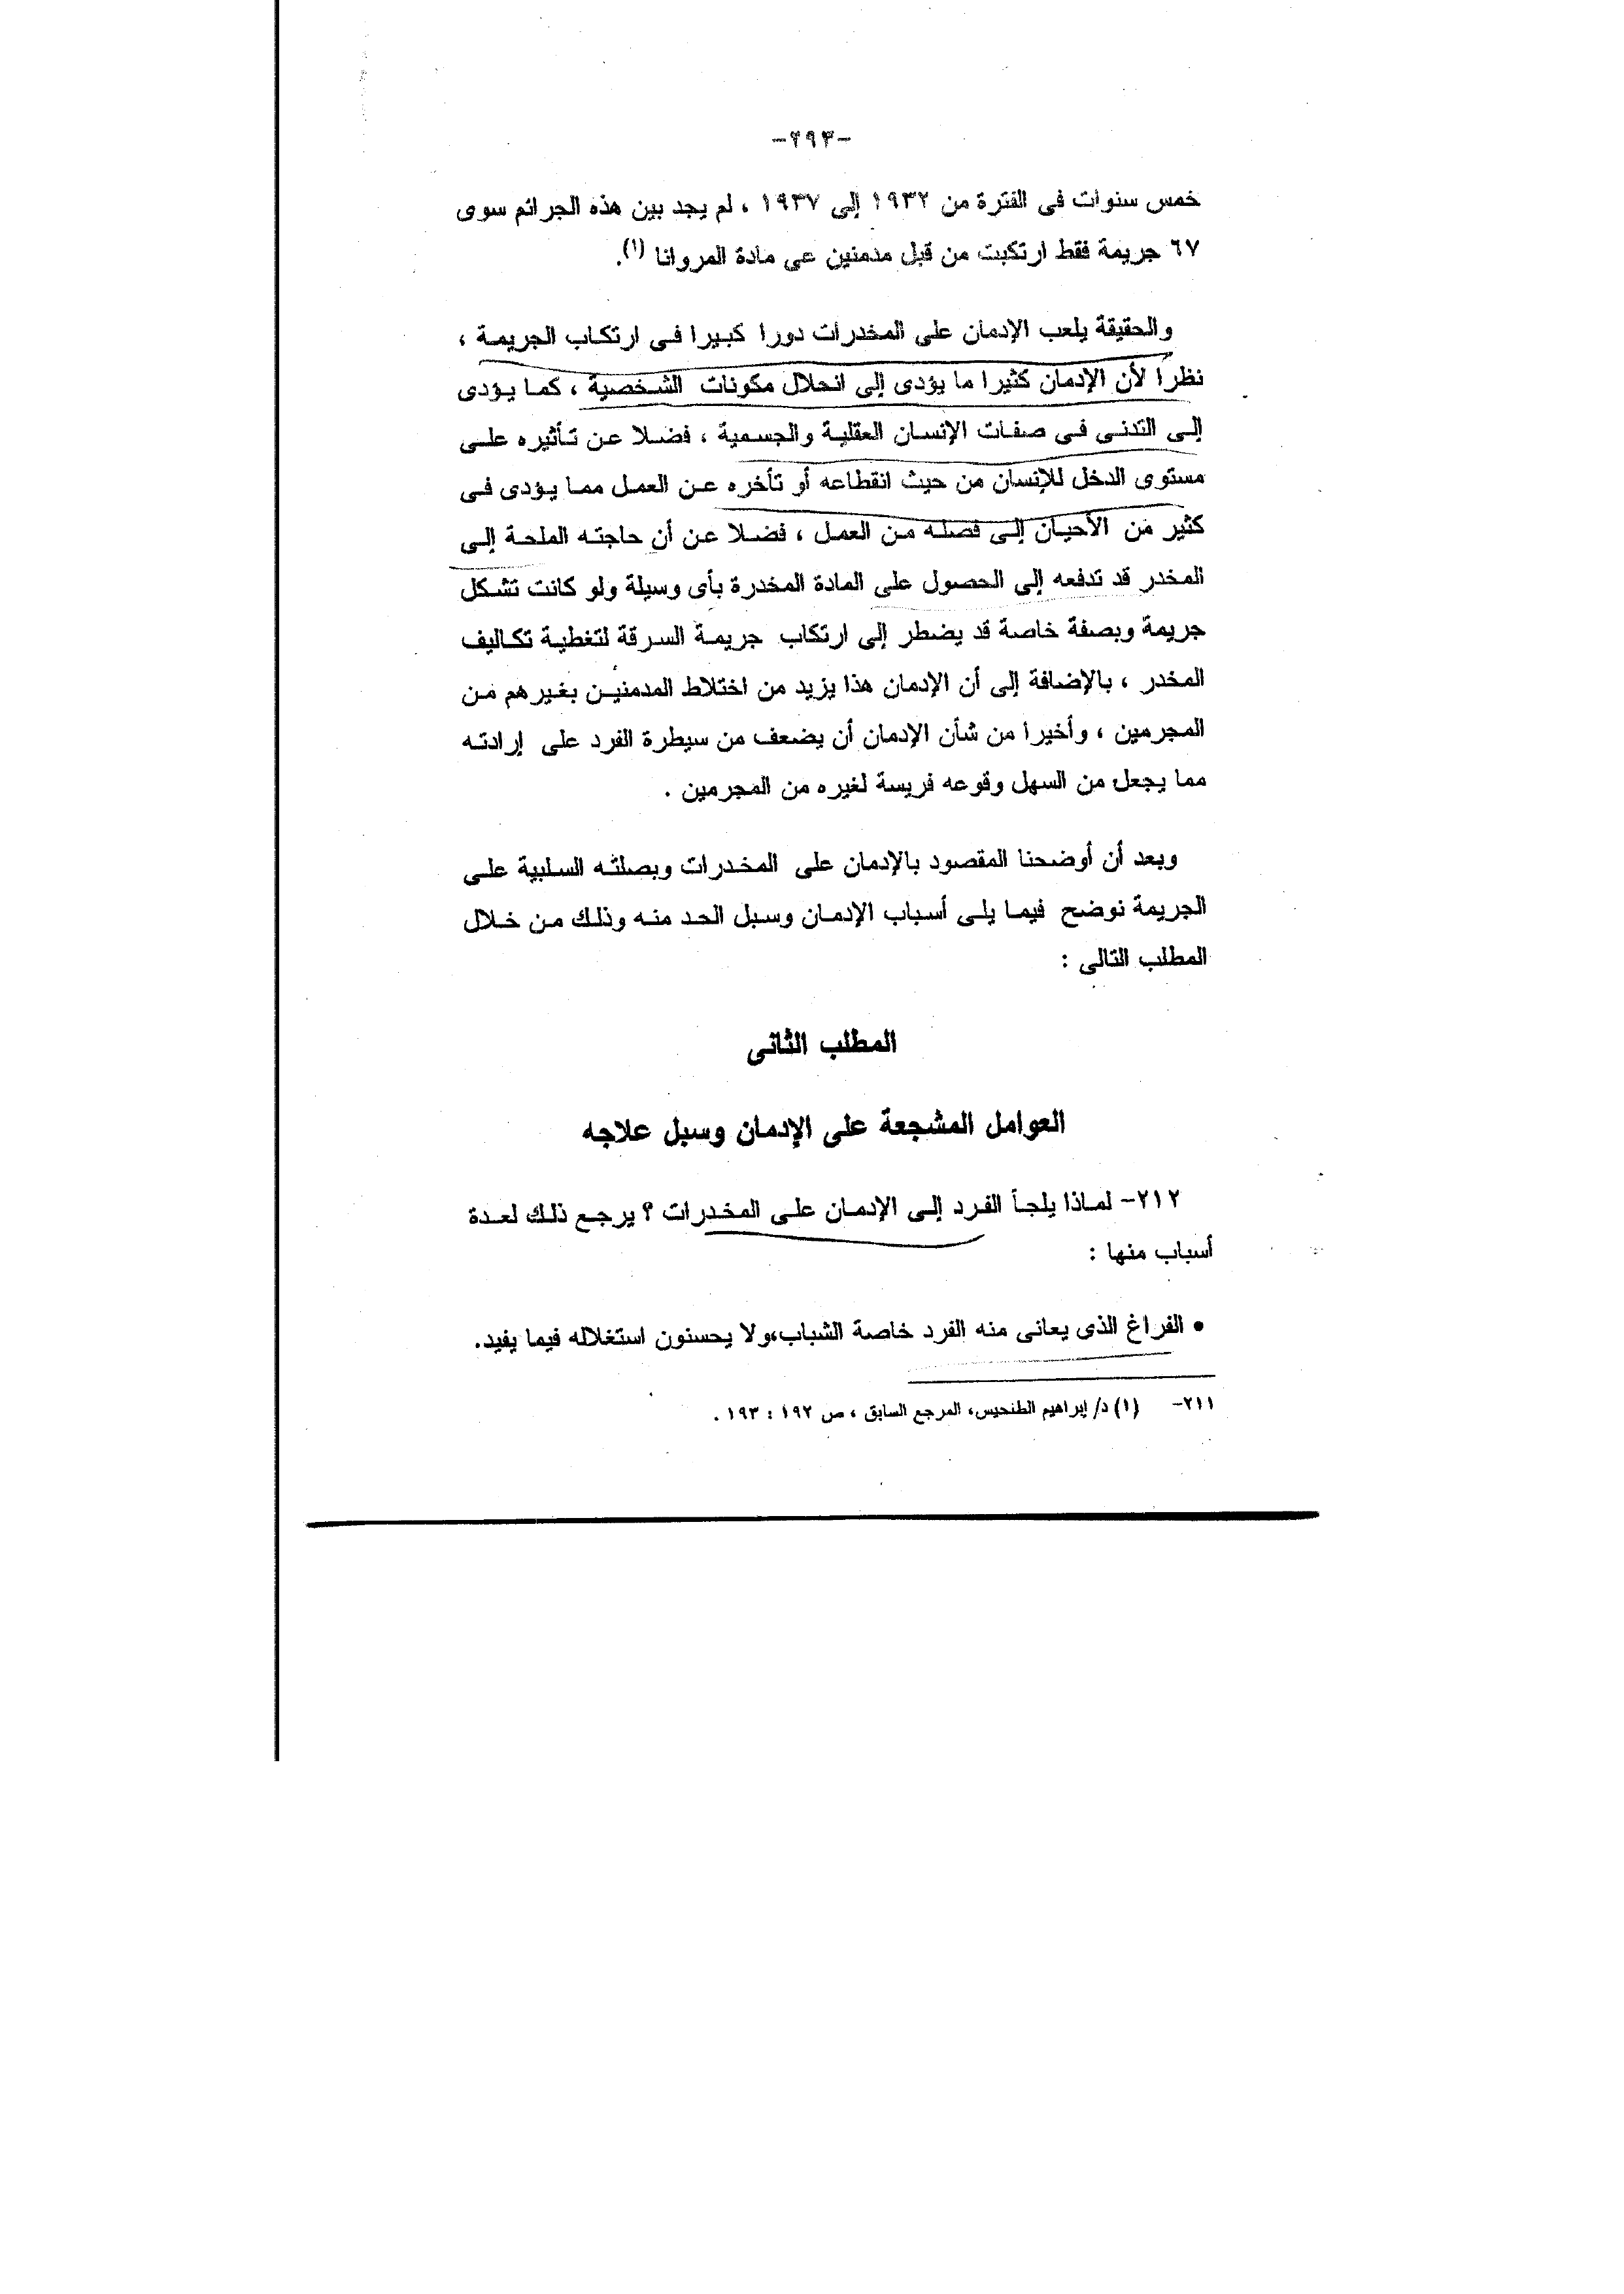 -٢٩٣-
خمس سنوات فى الفترة من ١٩٣٢ إلى ١٩٣٧ ، لم يجد بين هذه الجرائم سوى
٦٧ جريمة فقط ارتكبت من قبل مدمنين عى مادة المروانا (١).
والحقيقة يلعب الإدمان على المخدرات دورا كبيرا فى ارتكاب الجريمة ،
نظرا لأن الإدمان كثيرا ما يؤدى إلى انحلال مكونات الشخصية ، كما يؤدى
إلى التدنى فى صفات الإنسان العقلية والجسمية ، فضلا عن تأثيره على
مستوى الدخل للإنسان من حيث انقطاعه أو تأخره عن العمل مما يؤدى فى
كثير من الأحيان إلى فصله من العمل ، فضلا عن أن حاجته الملحة إلى
المخدر قد تدفعه إلى الحصول على المادة المخدرة بأى وسيلة ولو كانت تشكل
جريمة وبصفة خاصة قد يضطر إلى ارتكاب جريمة السرقة لتغطية تكاليف
المخدر ، بالإضافة إلى أن الإدمان هذا يزيد من اختلاط المدمنين بغيرهم من
المجرمين ، وأخيرا من شأن الإدمان أن يضعف من سيطرة الفرد على إرادته
مما يجعل من السهل وقوعه فريسة لغيره من المجرمين .
وبعد أن أوضحنا المقصود بالإدمان على المخدرات وبصلته السلبية على
الجريمة نوضح فيما يلى أسباب الإدمان وسبل الحد منه وذلك من خلال
المطلب التالى :
المطلب الثانى
العوامل المشجعة على الإدمان وسبل علاجه
٢١٢- لماذا يلجأ الفرد إلى الإدمان على المخدرات ؟ يرجع ذلك لعدة
أسباب منها :
• الفراغ الذى يعانى منه الفرد خاصة الشباب،ولا يحسنون استغلاله فيما يفيد.
٢١١- (١) د/ إبراهيم الطنحيس، المرجع السابق ، ص ١٩٢ : ١٩٣ .